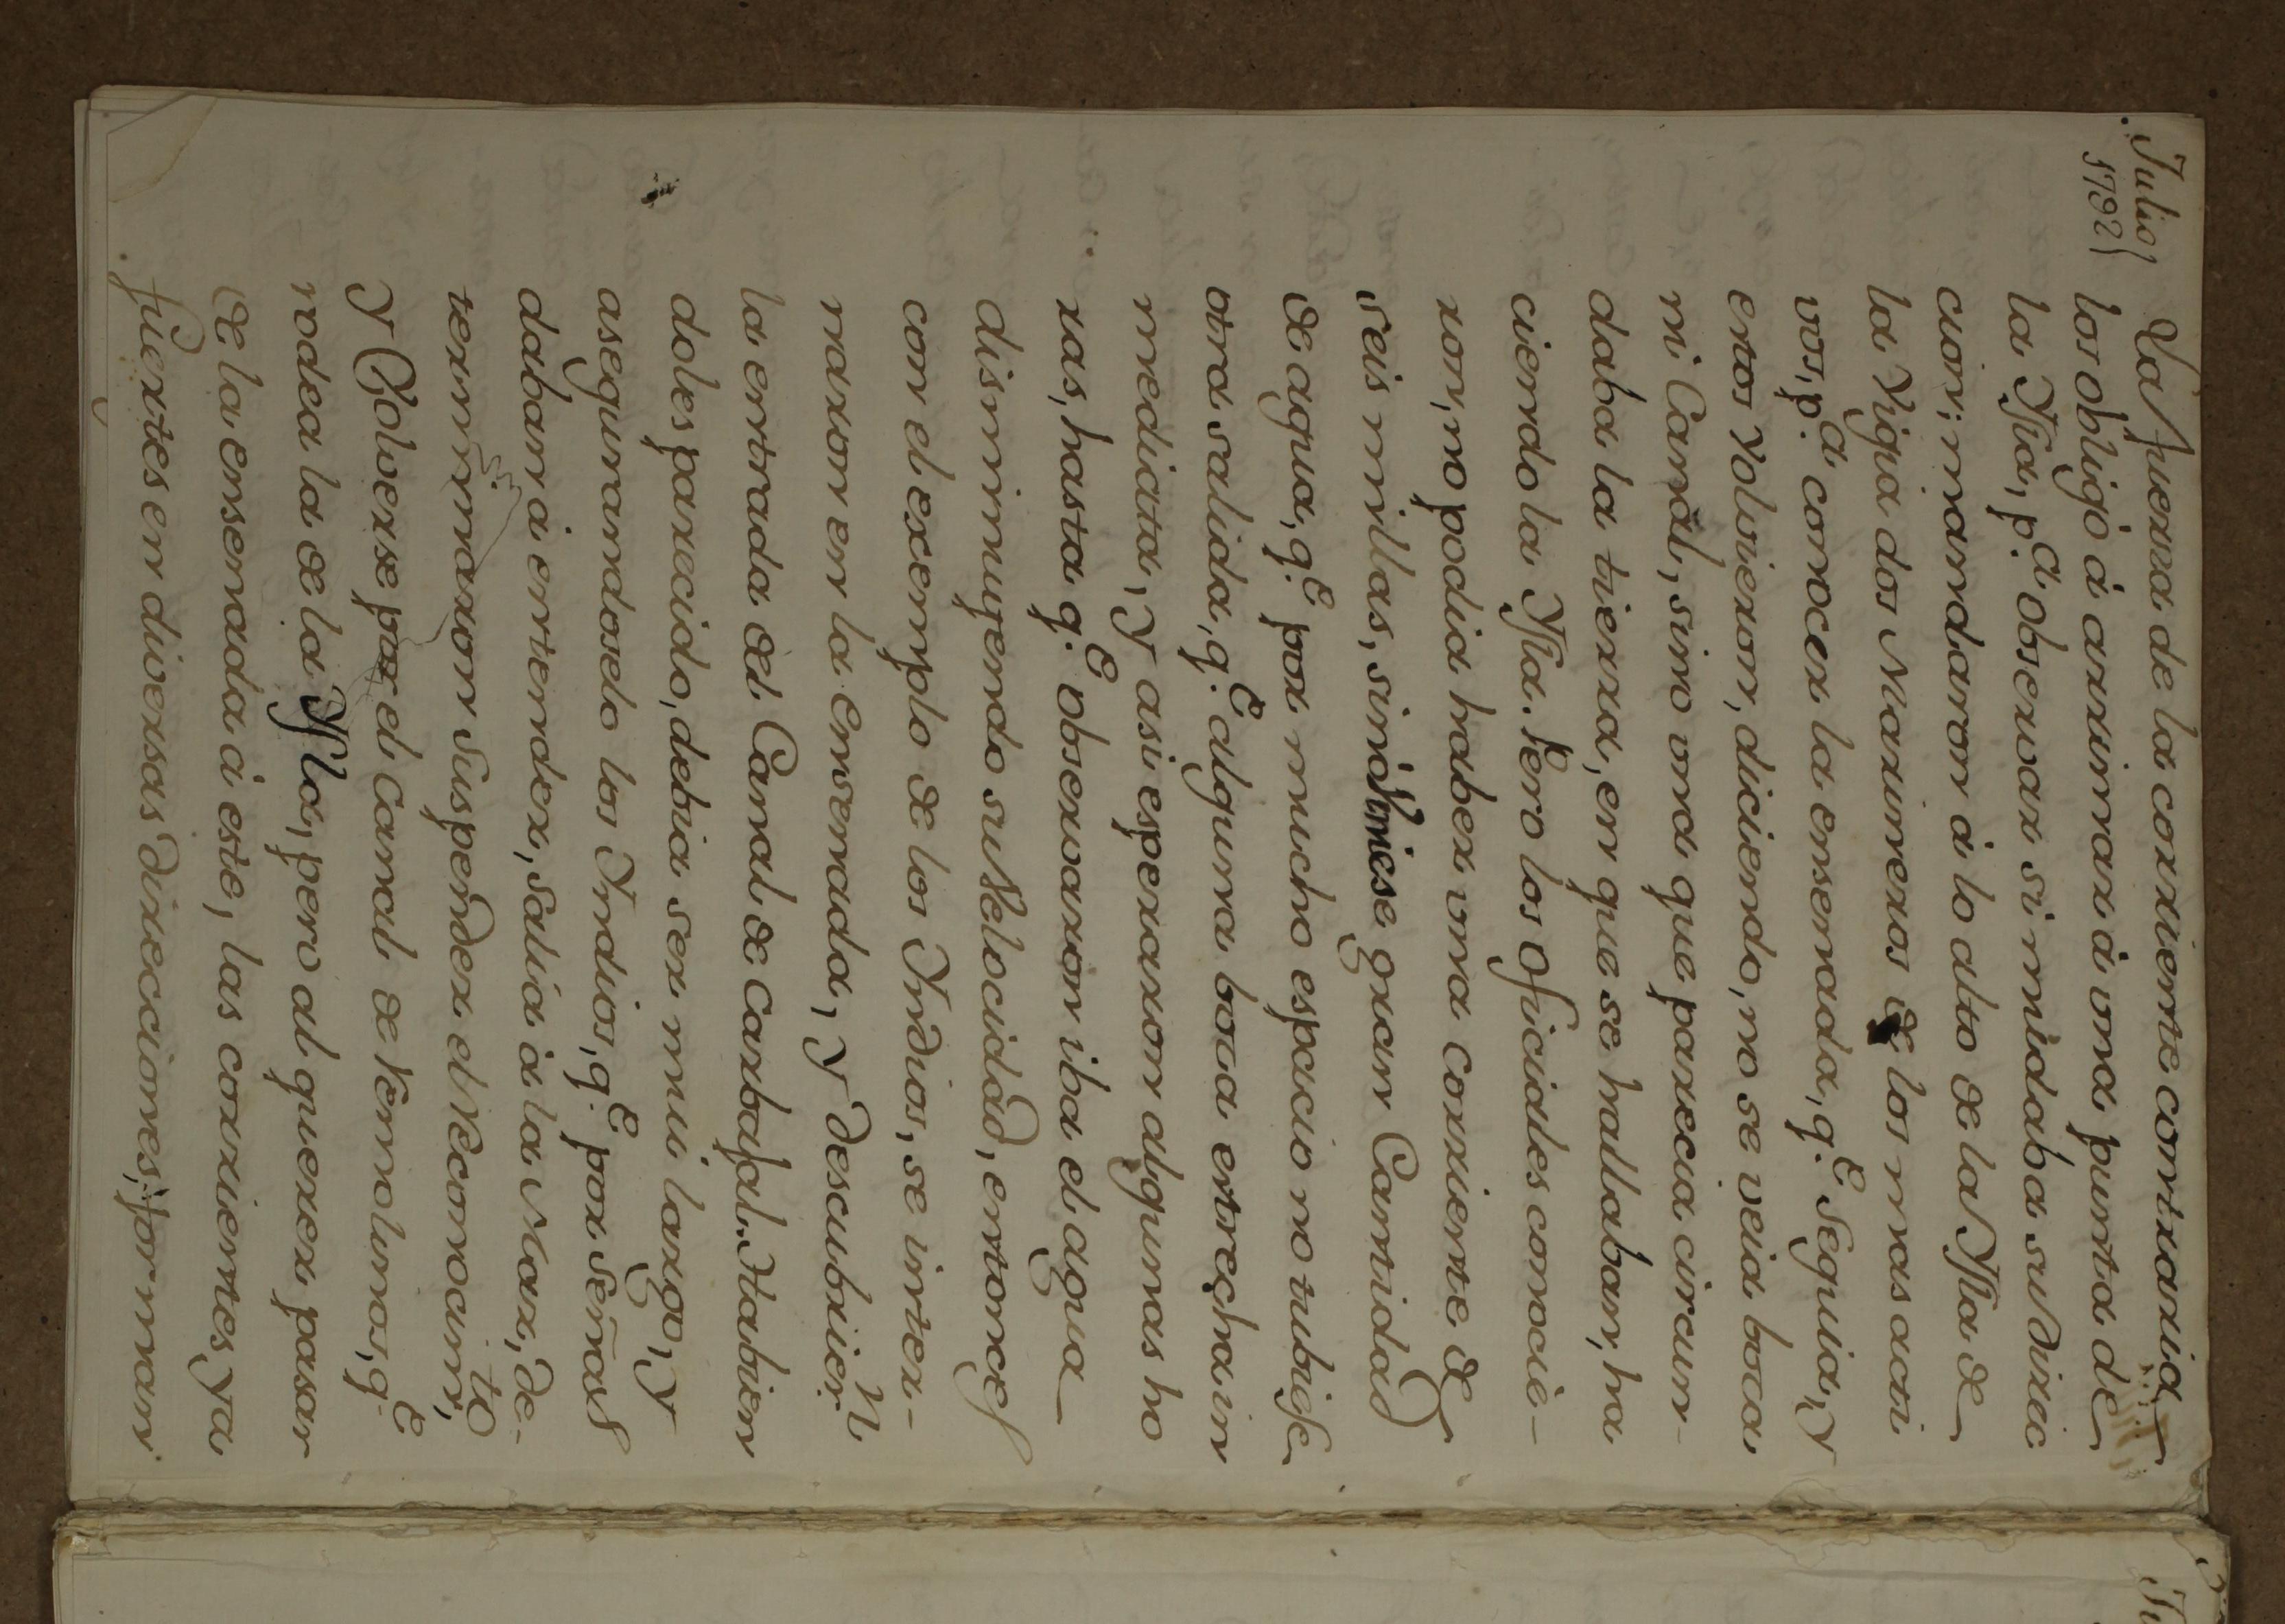 Julio
1792
La fuerza de la corriente contraria
los obligó á arrimar á una punta de
la Ysla, p.a observar si mudaba su direc
cion; mandaron á lo alto de la Ysla de
la Vigia dos Marineros de los mas acti
vos, p.a conocer la ensenada, q.e seguia, y
estos volvieron, diciendo, no se veia boca
ni Canal, sino una que parecia circun-
daba la tierra, en que se hallaban, ha
ciendo la Ysla. Pero los Oficiales conocie-
ron, no podia haber una corriente de
seis millas, sino viniese gran Cantidad
de agua, q.e por mucho espacio no tubiese
otra salida, q.e alguna boca estrecha in
mediata, y asi esperaron algunas ho
ras, hasta q.e observaron iba el agua
disminuyendo su Velocidad, entonces
con el exemplo de los Yndios, se inter-
naron en la ensenada, y descubrier.n
la entrada del Canal de Carbajal. Habien
doles parecido, debia ser mui largo, y
asegurandoselo los Yndios, q.e por señas
daban á entender, salia á la Mar, de-
terminaron suspender el Reconocim.to,
y Volverse por el Canal de Vernolinos, q.e
rodea la de la Ysla, pero al querer pasar
de la ensenada á este, las corrientes ya
fuertes en diversas direcciones, forman